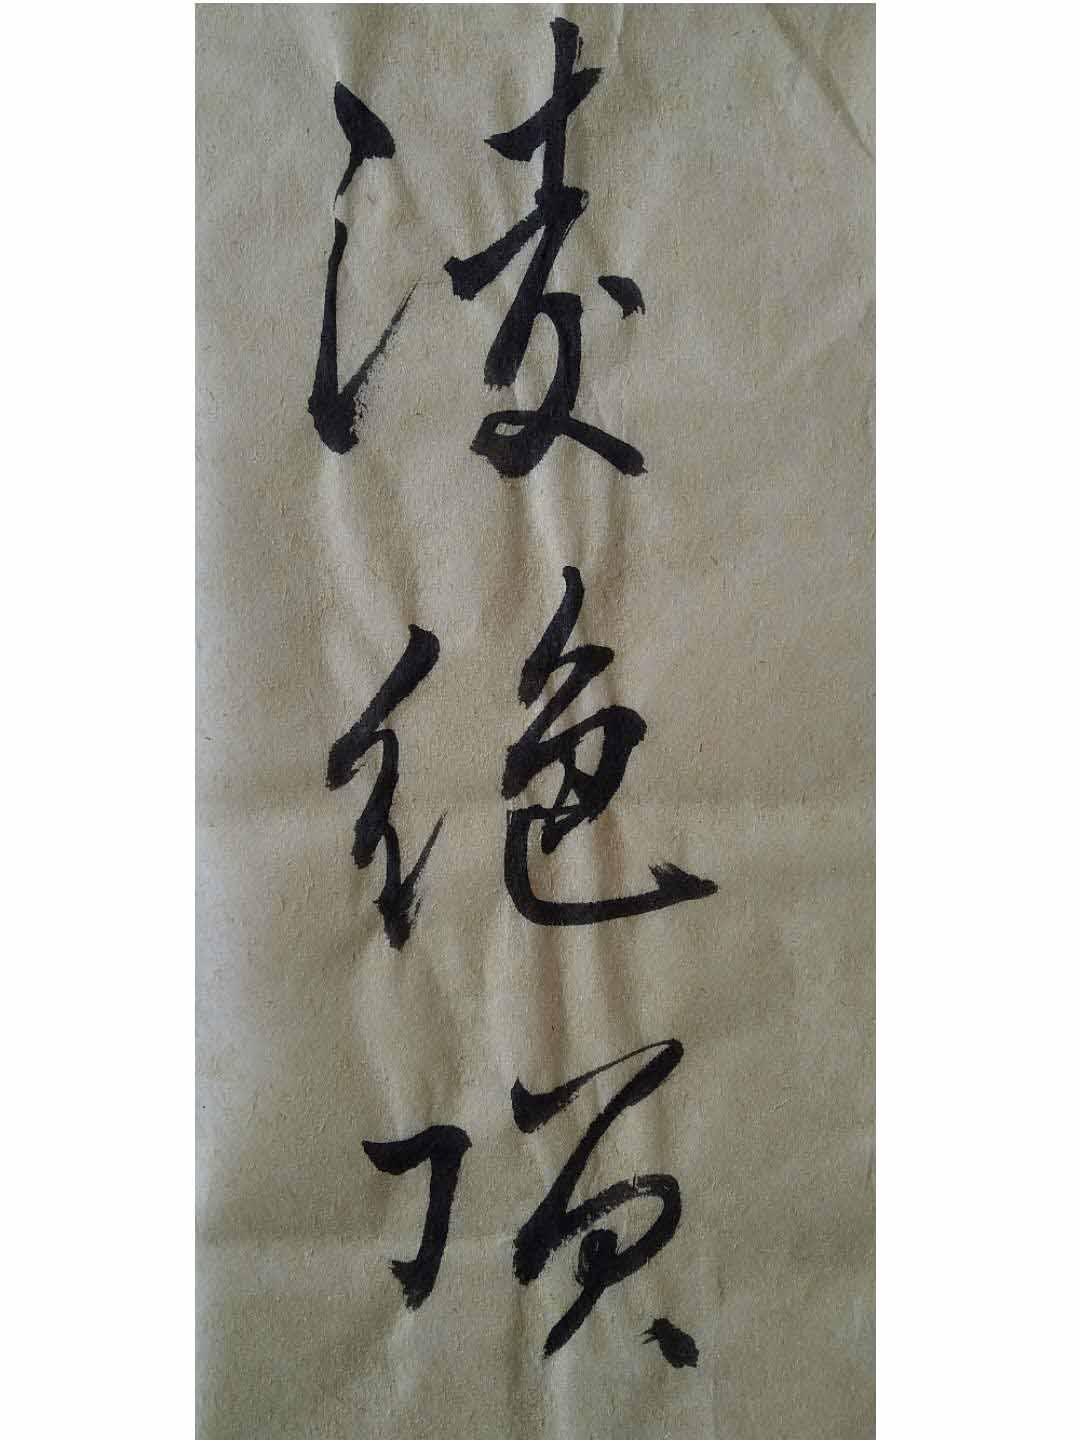 凌绝顶